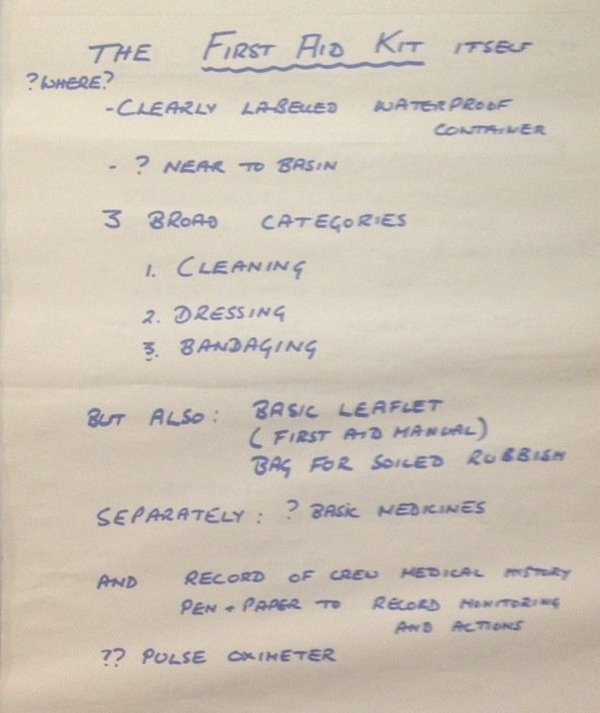 THE FIRST AID KIT ITSELF
?WHERE?
- CLEARLY LABELLED WATERPROOF
CONTAINER
- ? NEAR TO BASIN
3 BROAD CATEGORIES
1. CLEANING
2. DRESSING
3. BANDAGING
BUT ALSO: BASIC LEAFLET
(FIRST AID MANUAL)
BAG FOR SOILED RUBBISH
SEPARATELY: ? BASIC MEDICINES
AND RECORD OF CREW MEDICAL HISTORY
PEN + PAPER TO RECORD MONITORING
AND ACTIONS
?? PULSE OXIMETER